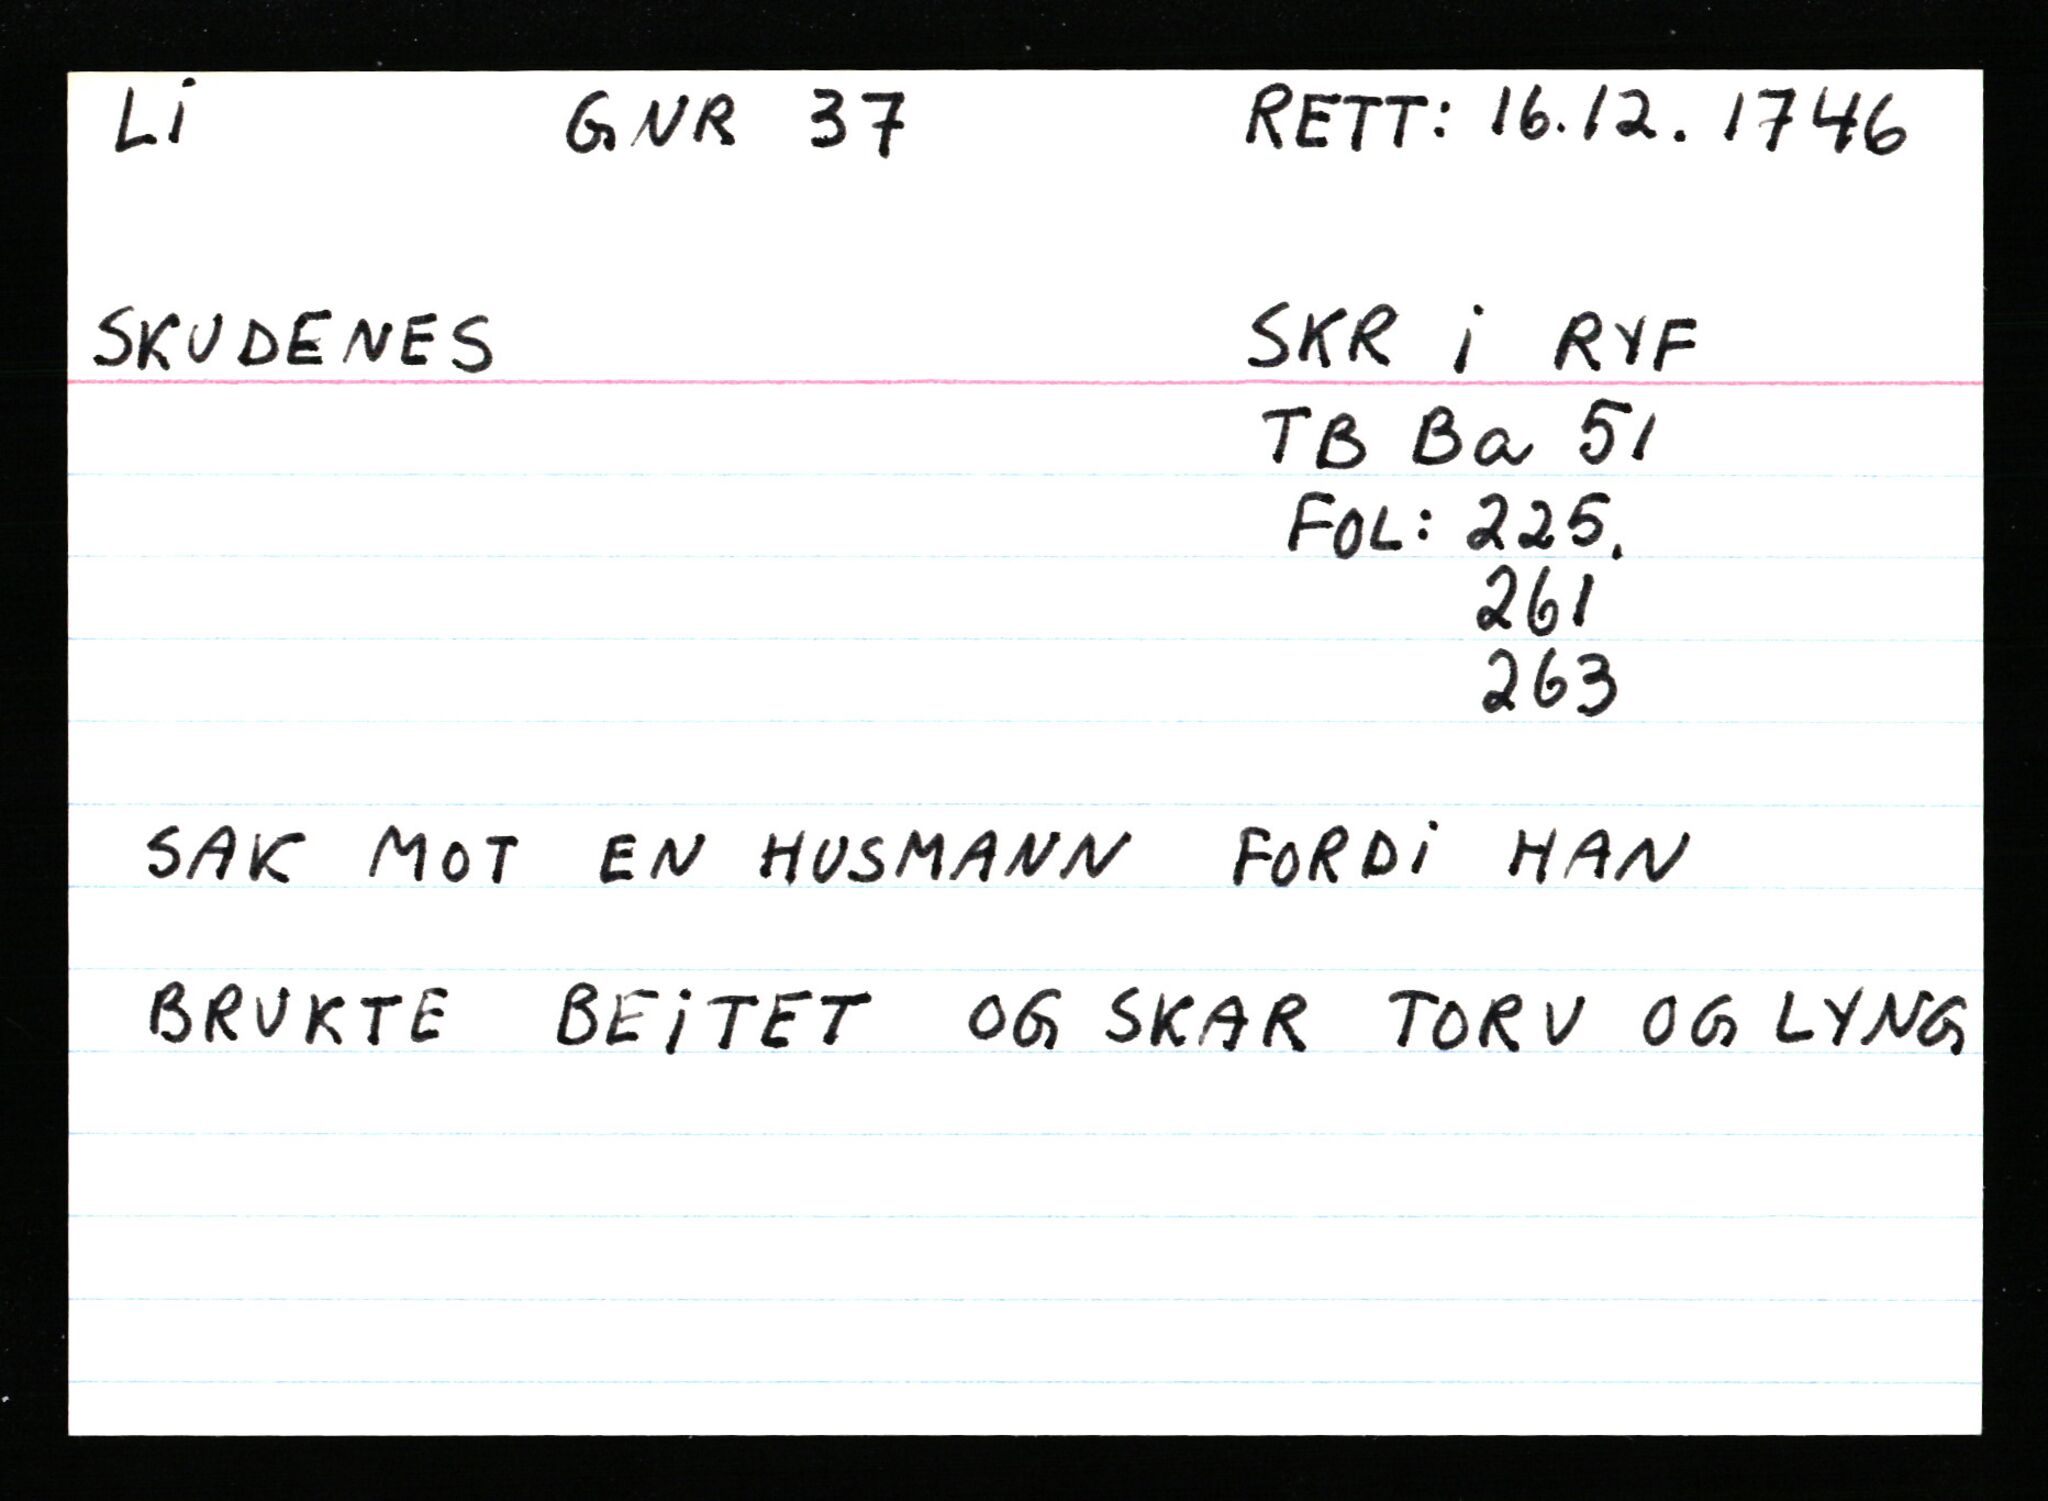 Li GNR 37 RETT: 16.12.1746
SKUDENES SKR i RYF
TB Ba 51
FOL: 225.
261
263
SAK MOT EN HUSMANN FORDi HAN
BRUKTE BEiTET OG SKAR TORV OG LYNG